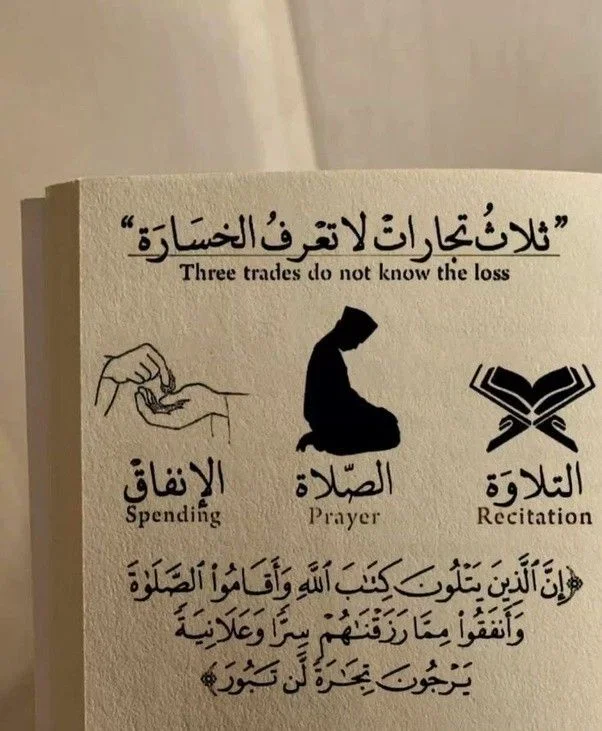 ”ثلاثُ تجاراتْ لا تعْرفُ الخسَارَة“
Three trades do not know the loss
التلاوَة
Recitation
الصّلاة
Prayer
الإنفاقْ
Spending
﴿إِنَّ ٱلَّذِينَ يَتۡلُونَ كِتَٰبَ ٱللَّهِ وَأَقَامُوا۟ ٱلصَّلَوٰةَ
وَأَنفَقُوا۟ مِمَّا رَزَقۡنَٰهُمۡ سِرࣰّا وَعَلَانِيَةࣰ
يَرۡجُونَ تِجَٰرَةࣰ لَّن تَبُورَ﴾